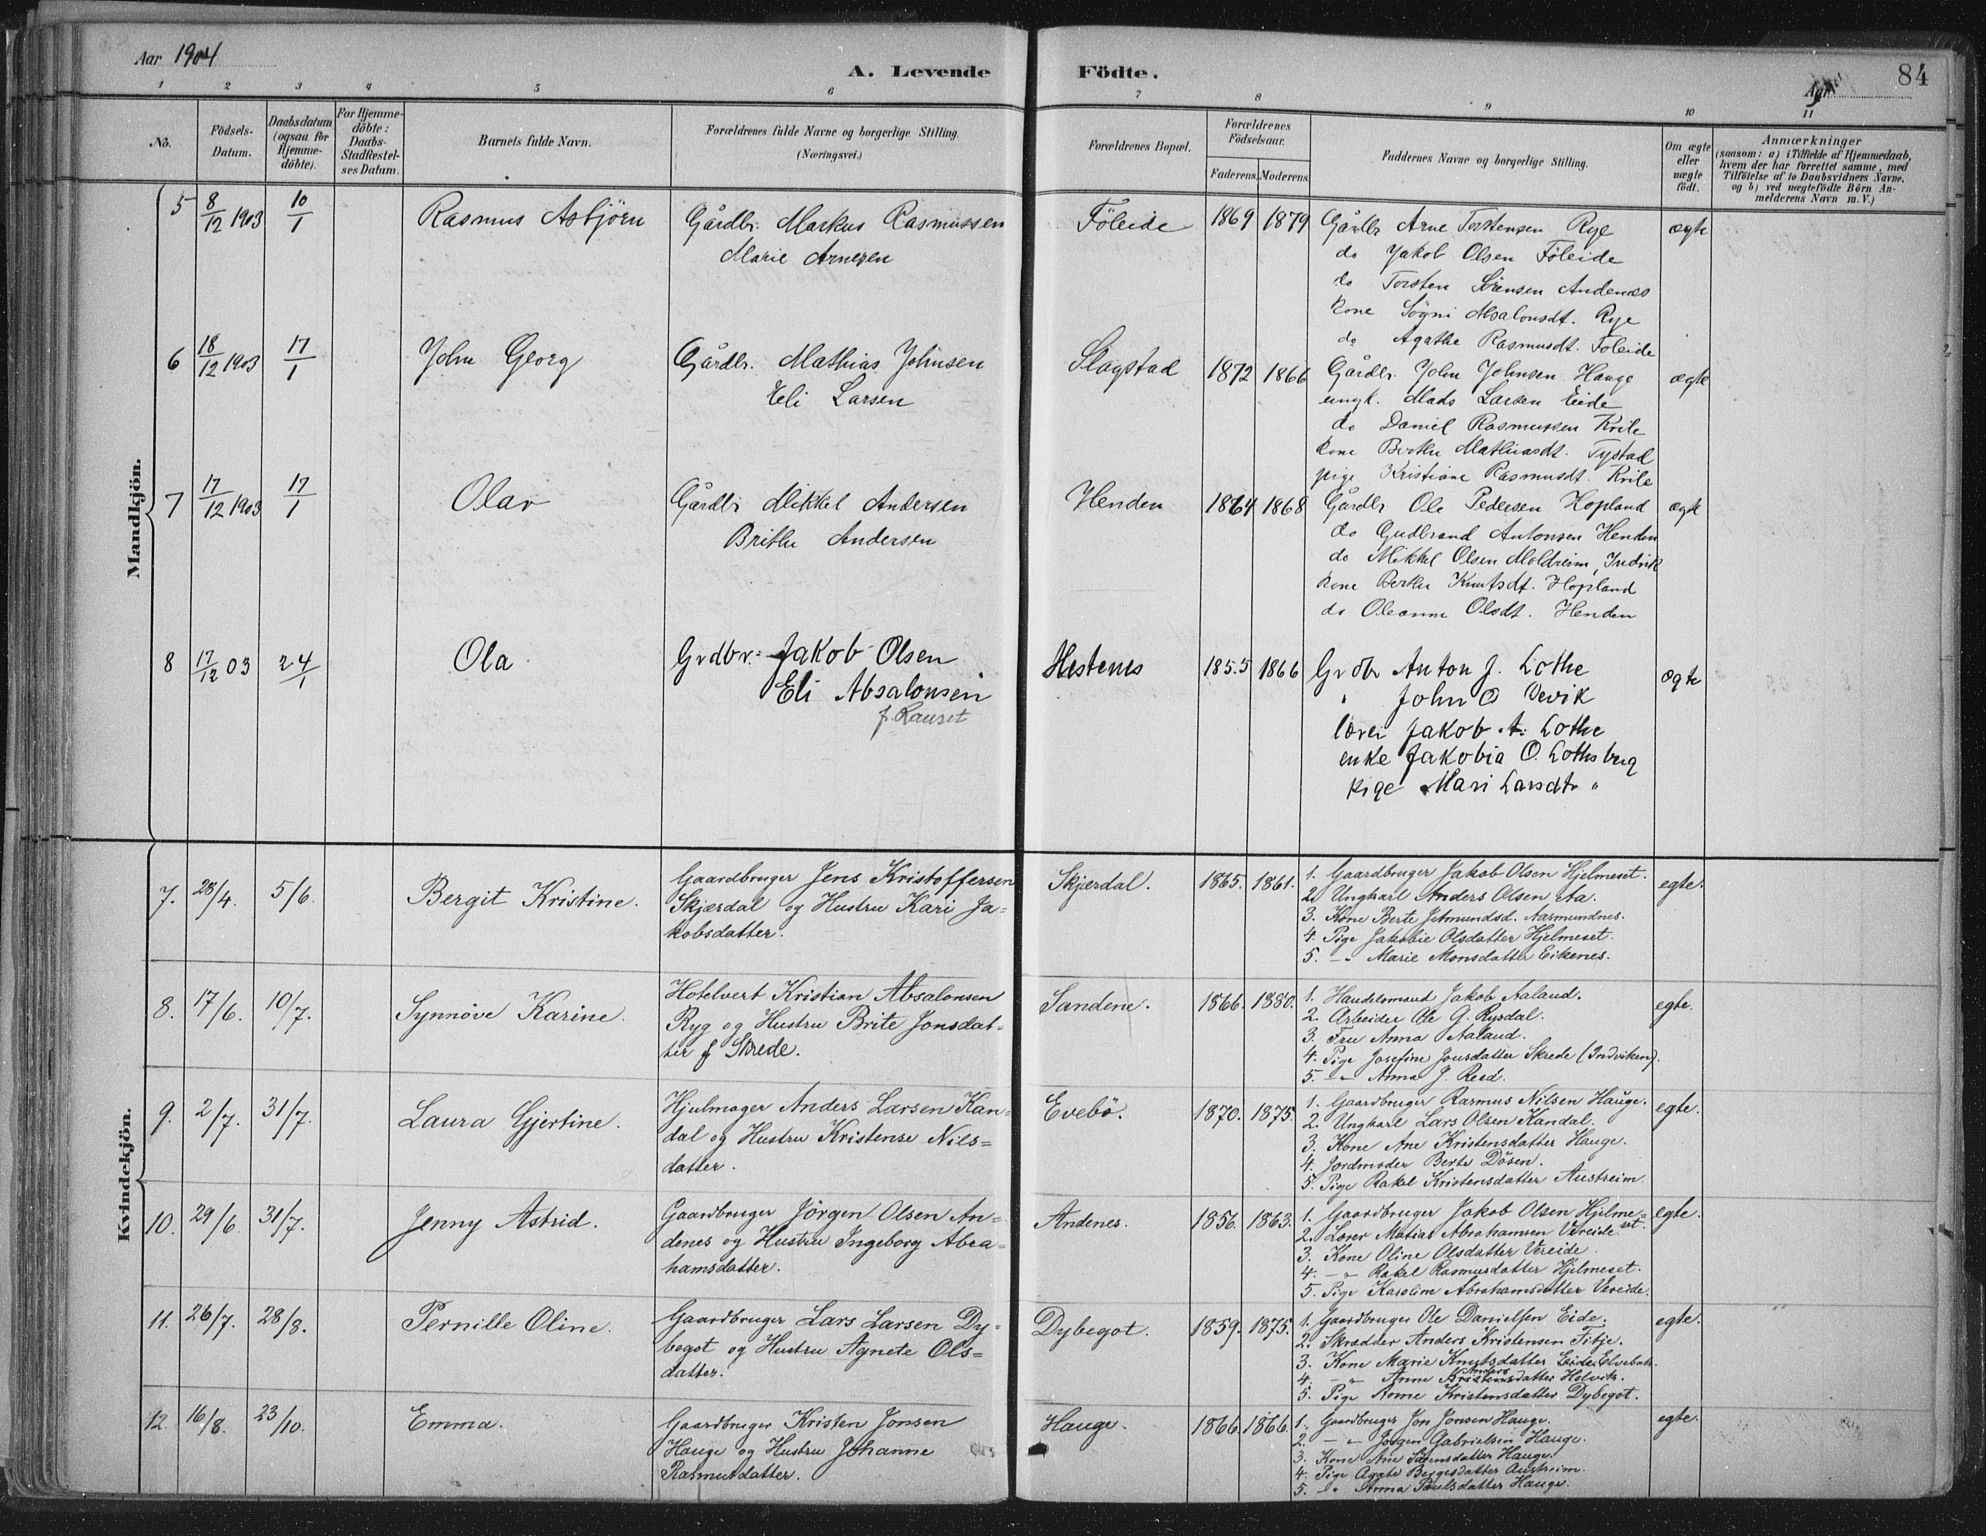 Aar 1904
A. Levende Födte.
Aar
84
1 2 3 4 5 6 7 8 9 10 11
No.
Födsels-Datum.
Daabsdatum (ogsaa for Hjemme-döbte).
For Hjemme-döbte: Daabs-Stadfæstel-ses Datum.
Barnets fulde Navn.
Forældrenes fulde Navne og borgerlige Stilling.
(Næringsvei.)
Forældrenes Bopæl.
Forældrenes Födselsaar.
Faderens. Moderens.
Faddernes Navne og borgerlige Stilling.
Om ægte eller uægte födt.
Anmærkninger
(saasom: a) i Tilfælde af Hjemmedaab, hvem der har forrettet samme, med Tilföielse af to Daabsvidners Navne. og b) ved uægtefödte Börn An-melderens Navn m. V.)
Mandkjön.
5 8/12 1903 10/1 Rasmus Asbjörn Gårdbr. Markus Rasmussen Föleide 1869 1879 Gårdbr Arne Torstensen Rye ægte
Marie Arnesen do Jakob Olsen Föleide
do Torsten Sörensen Andenes
Kone Sögni Absalonsdt. Rye
do Agathe Rasmusdt. Föleide
6 18/12 1903 17/1 John Georg Gårdbr. Mathias Johnsen Slagstad 1872 1866 Gårdbr. John Johnsen Hauge ægte
Eli Larsen ungk. Mads Larsen Eide
do Daniel Rasmussen Krile
Kone Berthe Mathiasdt. Tystad
pige Kristiane Rasmusdt. Krile
7 17/12 1903 17/1 Olav Gårdbr Mikkel Andersen Henden 1864 1868 Gårdbr Ole Pedersen Hopland ægte
Brithe Andersen do Gudbrand Antonsen Henden
do Mikkel Olsen Moldreim, Indvik
Kone Berthe Knutsdt. Hopland
do Oleanne Olsdt. Henden
8 17/12 03 24/1 Ola Grdbr. Jakob Olsen Hestenes 1855 1866 Grdbr Anton J. Lothe ægte
Eli Absalonsen " John O Vevik
f. Rauset lærer Jakob A. Lothe
enke Jakobia O. Lothsberg
Pige Mari Larsdtr "
Kvindekjön.
7. 28/4. 5/6. Bergit Kristine. Gaardbruger Jens Kristoffersen Skjerdal. 1865. 1861. 1. Gaardbruger Jakob Olsen Hjelmeset. egte.
Skjærdal og Hustru Kari Ja- 2. Ungkarl Anders Olsen Aa.
kobsdatter. 3. Kone Berte Jetmundsd. Aasmundnes.
4. Pige Jakobie Olsdatter Hjelmeset.
5. -"- Marie Monsdatter Eikenes.
8. 17/6. 10/7. Synnöve Karine. Hotelvert Kristian Absalonsen Sandene. 1866. 1880. 1. Handelsmand Jakob Aaland. egte.
Ryg og Hustru Brite Jonsdat- 2. Arbeider Ole G. Rysdal.
ter f Skrede. 3. Fru Anna Aaland.
4. Pige Josefine Jonsdatter Skrede (Indviken).
5. -"- Anna J. Reed.
9. 2/7. 31/7. Laura Gjertine. Hjulmager Anders Larsen Kan- Evebö. 1870. 1875. 1. Gaardbruger Rasmus Nilsen Hauge. egte.
dal og Hustru Kristense Nils- 2. Ungkarl Lars Olsen Kandal.
datter. 3. Kone Ane Kristensdatter Hauge.
4. Jordmoder Berte Dösen.
5. Pige Rakel Kristensdatter Austreim.
10. 29/6. 31/7. Jenny Astrid. Gaardbruger Jörgen Olsen An- Andenes. 1856. 1863. 1. Gaardbruger Jakob Olsen Hjelme-set. egte.
denes og Hustru Ingeborg Abra- 2. Lærer Matias Abrahamsen Vereide.
hamsdatter. 3. Kone Oline Olsdatter Vereide.
4. -"- Rakel Rasmusdatter Hjelmeset.
5. Pige Karoline Abrahamsdatter Vereide.
11. 26/7. 28/8. Pernille Oline. Gaardbruger Lars Larsen Dy- Dybegot. 1859. 1875. 1. Gaardbruger Ole Danielsen Eide. egte.
begot og Hustru Agnete Ols- 2. Skrædder Anders Kristensen Fitje.
datter. 3. Kone Marie Knutsdatter Eide Elvebak.
4. -"- Anne Andersdatter Helvik.
5. Pige Anne Kristensdatter Dybegot.
12. 16/8. 23/10. Emma. Gaardbruger Kristen Jonsen Hauge. 1866. 1866. 1. Gaardbruger Jon Jonsen Hauge. egte.
Hauge og Hustru Johanne 2. -"- Jörgen Gabrielsen Hauge.
Rasmusdatter. 3. Kone Ane Simensdatter Hauge.
4. Pige Agate Austreim.
5. -"- Anna Paulsdatter Hauge.